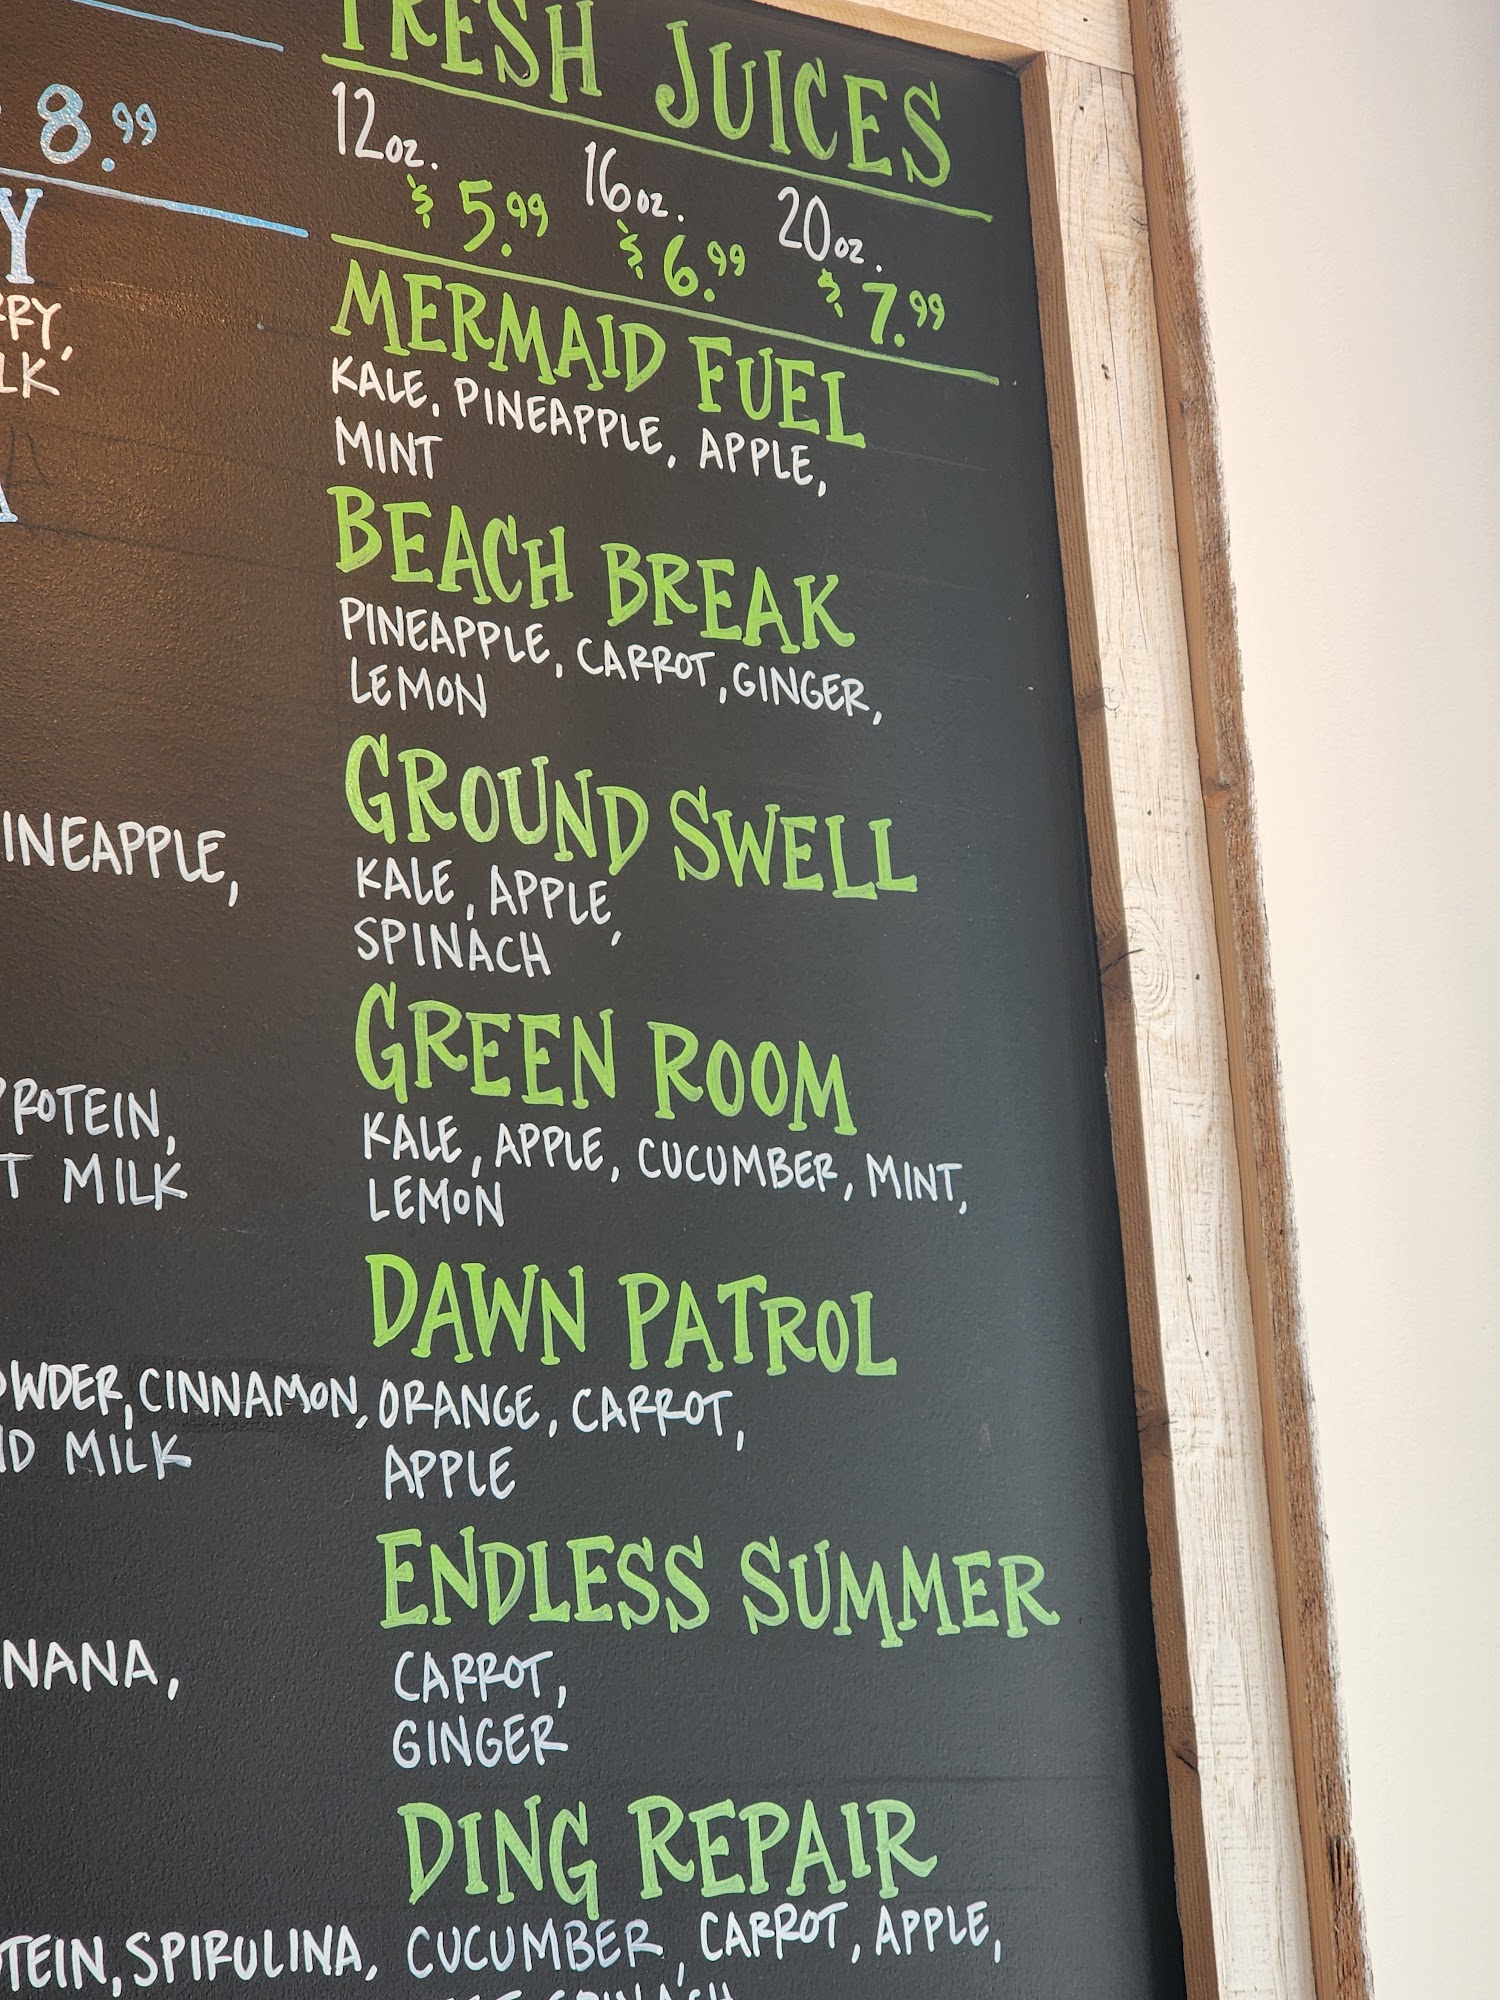 8.99
Y
RY,
LK
INEAPPLE,
ROTEIN,
T MILK
OWDER, CINNAMON,
D MILK
NANA,
TEIN, SPIRULINA,
FRESH JUICES
12oz. 16oz. 20oz.
$5.99 $6.99 $7.99
MERMAID FUEL
KALE, PINEAPPLE, APPLE,
MINT
BEACH BREAK
PINEAPPLE, CARROT, GINGER,
LEMON
GROUND SWELL
KALE, APPLE,
SPINACH
GREEN ROOM
KALE, APPLE, CUCUMBER, MINT,
LEMON
DAWN PATROL
ORANGE, CARROT,
APPLE
ENDLESS SUMMER
CARROT,
GINGER
DING REPAIR
CUCUMBER, CARROT, APPLE,
SPINACH